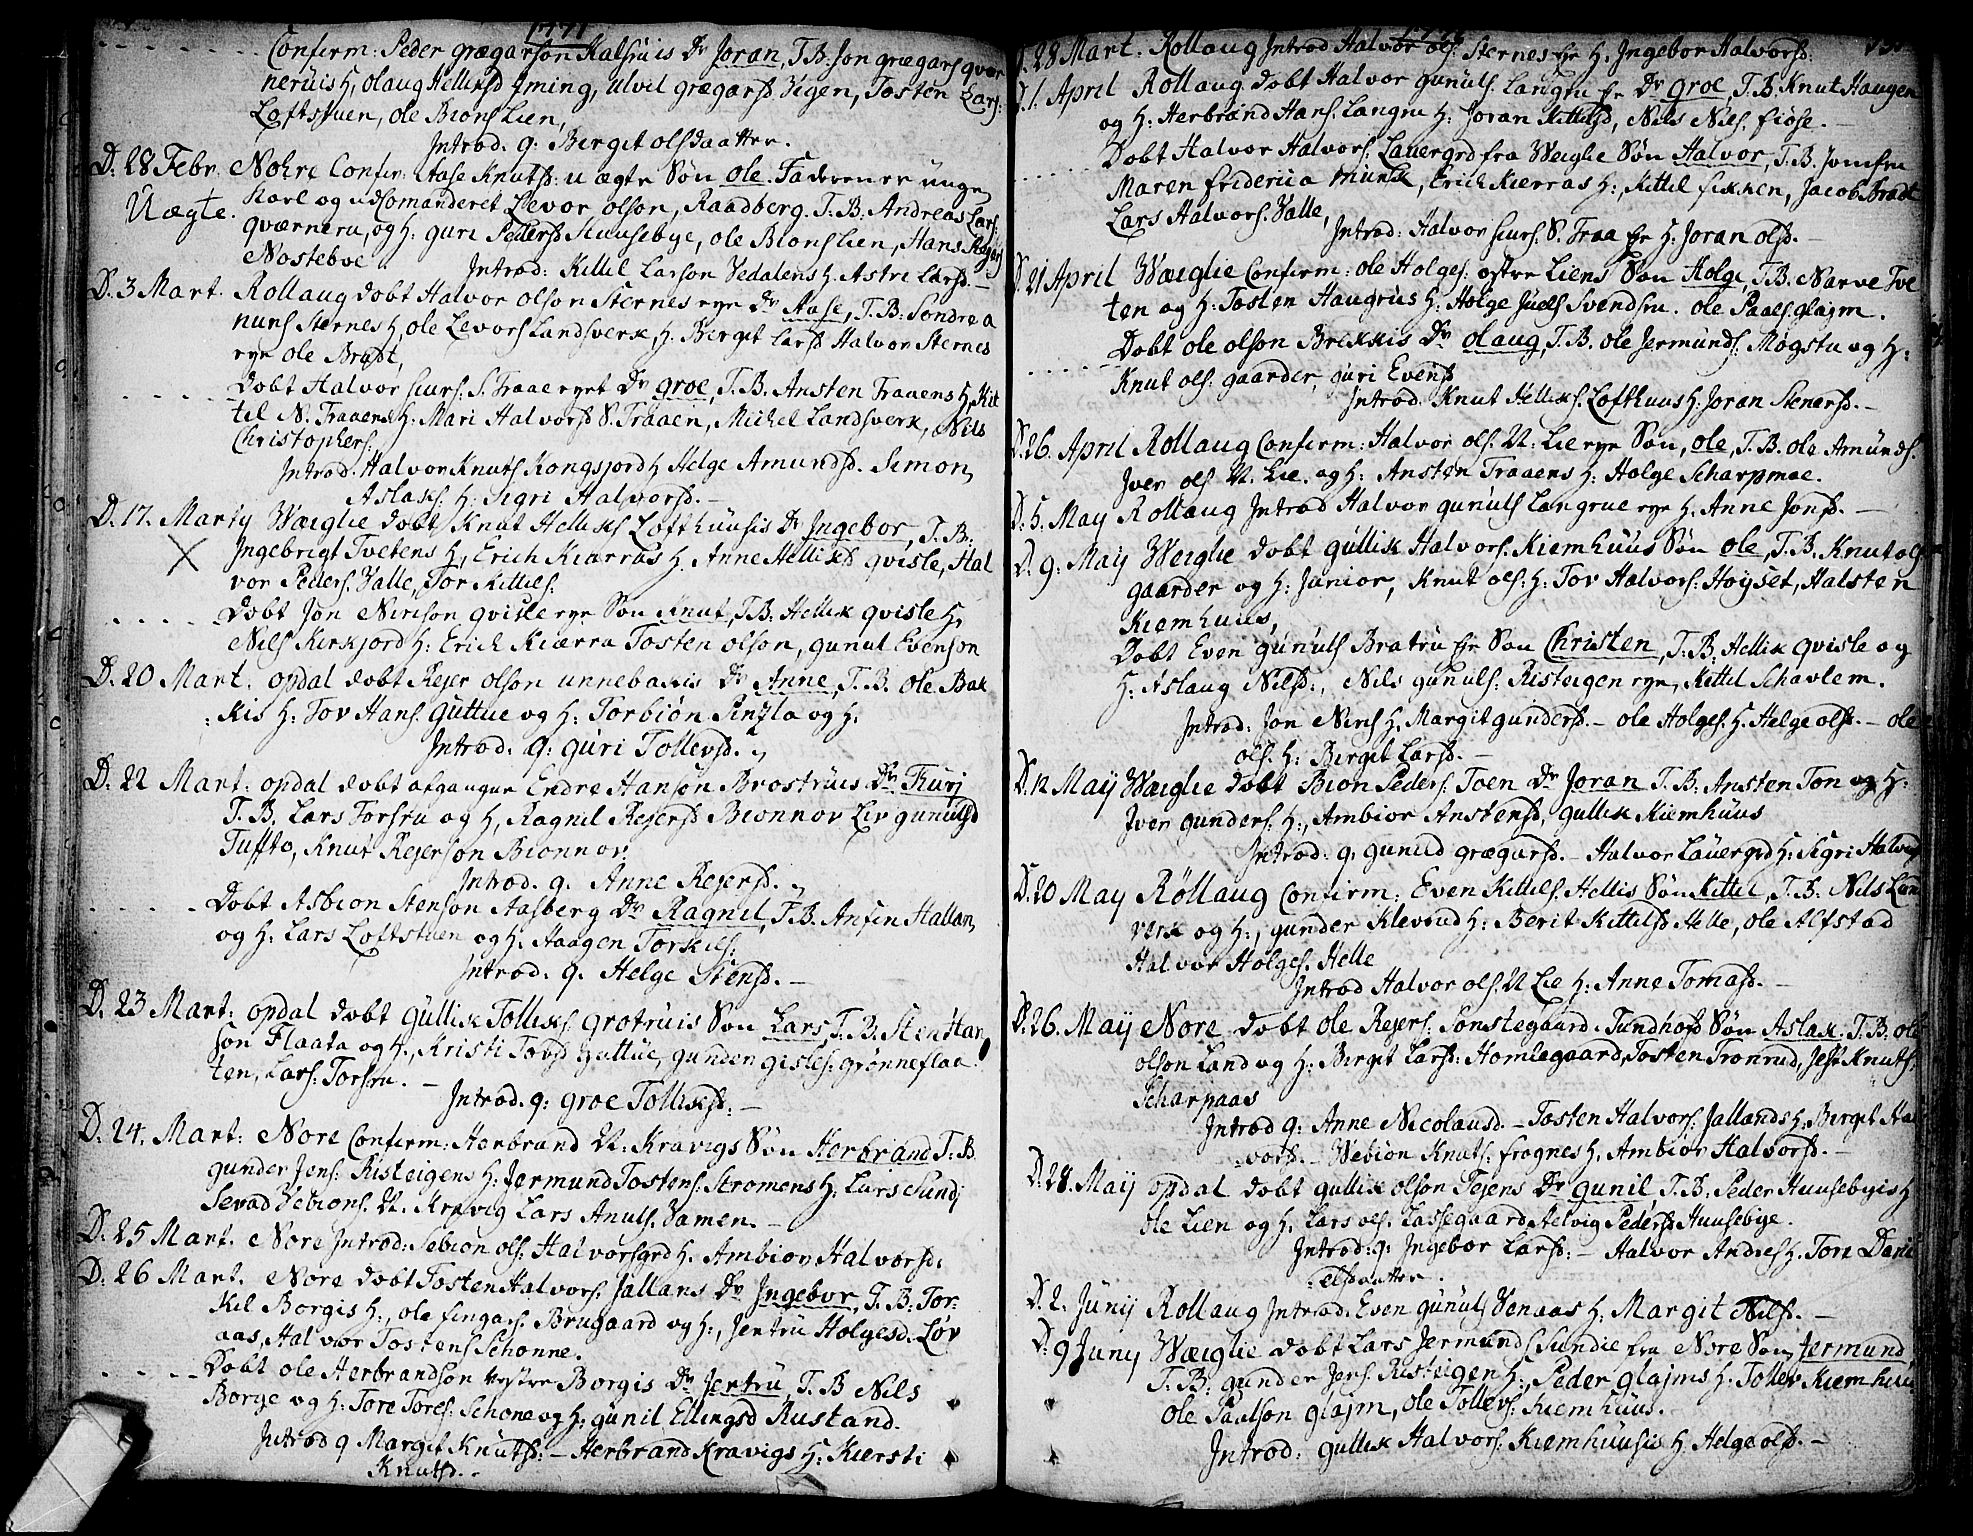 1771
Confirm: Peder grægarson Kalhuis Dr Joran, T.B. Jon grægars qvær
neruis H, olaug Hellixsd Jming, Ulvil grægarsd Vegen, Tosten Lars:
Loftstuen, ole Bions Lien,
Introd. q: Berget olsdaatter.
D. 28 Febr. Nohre Confir: Aase Knutsd: uægte Søn ole. Faderen er unge
Uægte. Karl og udComanderet Levor olson, Raadberg. T.B. Andreas Lars:
qværneru, og H: guri Pedersd Huusebye, ole Bions Lien, Hans
Nosteboe. Introd: Kittil Larson Vedalens H. Astri Larsd. —
D. 3 Mart. Rollaug dobt Halvor olson Sternes eye Dr Aase, T.B: Sondre a
nuns Sternes H, ole Levors Landsverk, H. Berget Larsd Halvor Sternes
eye ole Bradt,
- - - - - Dobt Halvor Siurs. S. Traaeeyet Dr groe, T.B. Ansten Traaens H, Kit
til N. Traaens H: Mari Halvorsd S. Traaen, Michel Landsverk, Nils
Christophers.
Introd. Halvor Knuts Kongsjord H Helge Amundsd. Simon
Aslaks. H: Sigri Halvorsd. —
D. 17. Marty Wæglie dobt Knut Hellixs Lofthuusis Dr Ingebor, T.B:
X Ingebrigt Tvetens H, Erich Kiærras H. Anne Hellixsd qvisle, Hal
vor Peders. Valle, Tor Kittils:
. . . . . Dobt Jon Nirison qvisle eye Søn Knut, T.B: Hellik qvisle H,
Nils Kirkjord H: Erich Kiærra Tosten olson, gunul Evenson
D. 20 Mart. opdal dobt Rejer olson unnebakis Dr Anne, T.B. ole Bak
kis H: Tov Hans. Guttue og H: Torbiön Sinzla og H.
Introd. q: guri Tollevsd.
D. 22 Mart: opdal dobt afganger Endre Hanson Brostruis Dr Turj
T.B. Lars Torsru og H, Ragnil Rejersd Bionnor Liv gunulsd
Tuffto, Knut Rejerson Bionnor.
Introd. q. Anne Rejersd.
. . . . . Dobt Asbion Stenson Aasberg Dr Ragnil, T.B. Ansin Hallan,
og H: Lars Loftstuen og H. Haagen Torkils:
Introd: q. Helge Stensd. —
D. 23 Mart: opdal dobt Gullik Tolliks grotruis Søn Lars, T.B. Sten Han
son Flaata og H., Kristi Tovsd Guttue, gunden gisles. grønneflaa
ten, Lars: Torsru. —
Introd. q: groe Tollixsd: —
D. 24. Mart: Nore Confirm: Herbrand N: Kravigs Søn Herbrand T.B
gunder Jens. Risteigens H: Jermund Tostens: Stromens H: Lars Sundj
Sevad Vebions. N. Kravig Lars Anuls. Vamen. —
D. 25 Mart. Nore Introd: Sebion ols: Halvorsgrd H. Ambior Halvorsd:
D: 26 Mart. Nore dobt Tosten Halvors. Jallans Dr Ingebor, T.B. Tor:
kil Borgis H., ole fingars. Brugaard og H:, Jertru Holgesd. Løv
aas, Halvor Tostens Schonne.
. . . . . Dobt ole Herbrandson vestre Borgis Dr Jertru, T.B Nils
Borge og H: Tore Tores: Schone og H: gunil Ellingsd Rustand.
Introd q Margit Knutsd: — Herbrand Kravigs H: Kiersti
Knutsd. -
D. 28 Mart. Rollaug Introd Halvor ols: Sternes Eye H. Ingebor Halvorsd:
D. 1. April Rollaug dobt Halvor gunuls. Langru Ee Dr groe, T.B. Knut Haugen
og H: Herbrand Hans. Langru H: Joran Kittilsd, Nils Nils. fiöse. —
. . . . . Dobt Halvor Halvors. Lauergrd fra Weglie Søn Halvor, T.B. Jomfru
Maren fridericia Munk, Erich Kierras H:, Kittil fikken, Jacob Bradt
Lars Halvors. Valle,
Introd: Halvor Siurs. S. Traa Ee H: Joran olsd. —
D. 21 April Wæglie Confirm: ole Holges: østre Liens Søn Holge, T.B. Narve Tve
ten og H: Tosten Haugrus H: Holge Juels Svendsru. ole Paals. glajm.
. . . . . Dobt ole olson Brekkis Dr olaug, T.B. ole Jermunds. Møgstu og H:
Knut ols: gaarder, guri Evensd
Introd. Knut Hellixs. Lofthuus H: Joran Stenersd. —
D. 26. April Rollaug Confirm: Halvor ols. N: Lie eye Søn, ole, T.B. ole Amunds.
Iver ols N. Lie. og H: Ansten Traaens H: Holge Scharpmoe.
D. 5. May Rollaug Introd Halvor gunuls Langrue eye H: Anne Jonsd. —
D. 9: May Weglie dobt gullik Halvors. Kiemhuus Søn ole, T.B. Knut ols
gaarder og H: Junior, Knut ols: H: Tov Halvors: Høyset, Halsten
Kiemhuus,
Dobt Even gunuls Bratru Ee Søn Christen, T.B: Hellik qvisle og
H: Aslaug Nilsd:, Nils gunuls: Risteigen eye, Kittil Schavlem.
Introd: Jon Niris H, Margit gundersd. — ole Holges. H. Helge olsd. — ole
ols. H: Berget Larsd. —
D. 12 May Wæglie dobt Bion Peders. Toen Dr Joran T.B. Ansten Ton og H:
Iver gunders: H:, Ambior Anstensd, gullik Kiemhuus
Introd: q: gunild grægarsd. — Halvor Lauergrd H: Sigri Halvord
D. 20 May Röllaug Confirm: Even Kittils. Hellis Søn Kittil, T.B. Nils Lan
verk og H:, gunder Klevrud H: Berit Kittilsd Helle, ole Alfstad
Halvor Holges. Helle
Introd Halvor ols. N Lie H: Anne Tomasd. —
D. 26. May Nore dobt ole Rejers: Sonstegaard. Tundhofd Søn Aslak. T.B: ole
olson Land og H: Berget Larsd: Homlegaard, Tosten Tronrud, Jesp Knuts.
Scharpaas
Introd q: Anne Nicolausd. — Tosten Halvors. Jallands H: Berget Hal
vorsd. — Webiön Knuts: frognes H. Ambiör Halvorsd. —
D. 28. May opdal dobt gullik olson Tejens Dr gunil T.B. Peder Huusebyis H
ole Lien og H. Lars ols. Lassegaard Aelvig Pedersd Huusebye.
Introd: q: Ingebor Larsd: — Halvor Andres H. Tore Dani
elsdatter.
D. 2. Junij Rollaug Introd. Even gunuls Venaas H: Margit Nilsd. —
D. 9 Juny Wæglie dobt Lars Jermunds Sundie fra Nore Søn Jermund
T.B: gunder Jens. Risteigen H:, Peder glajms H: Tollev Kiemhuu
ole Paalson glajm, ole Tollevs. Kiemhuus.
Introd: gullik Halvors: Kiemhuusis H. Helge olsd. —